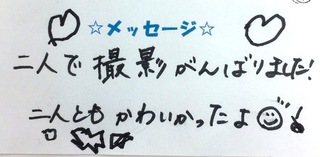 ☆メッセージ☆
二人で撮影がんばりました!
二人ともかわいかったよ